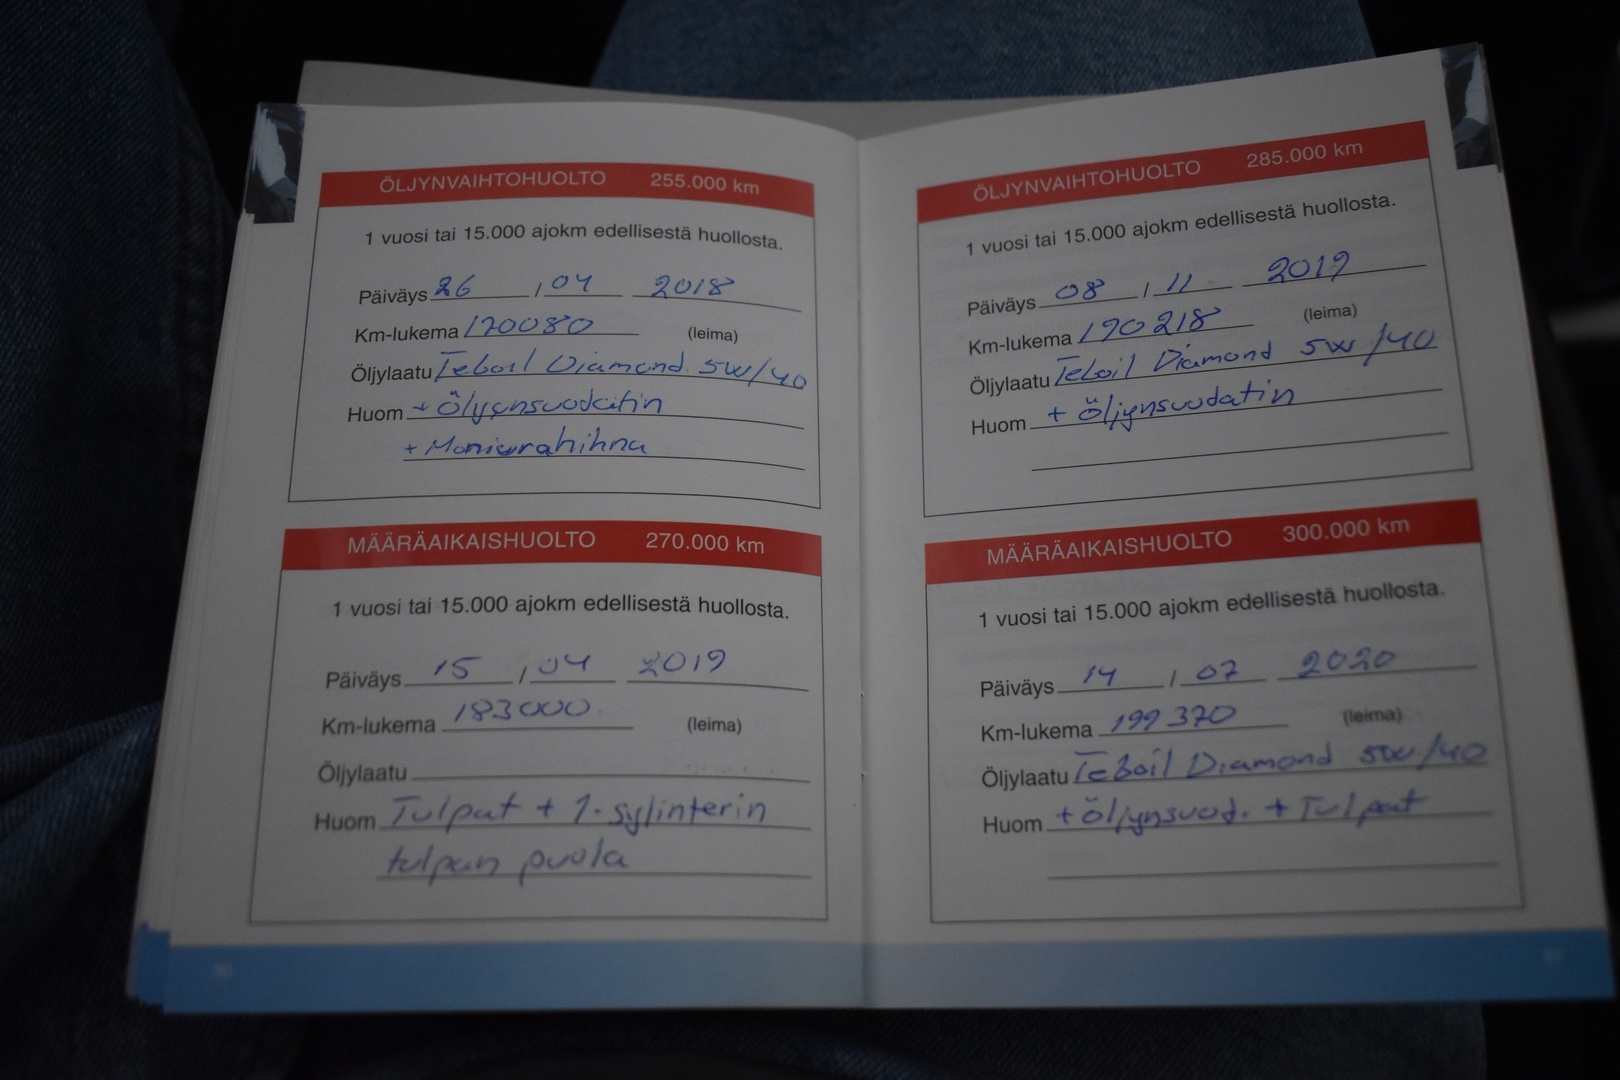 ÖLJYNVAIHTOHUOLTO 255.000 km
1 vuosi tai 15.000 ajokm edellisestä huollosta.
Päiväys 26 / 04 2018
Km-lukema 170080 (leima)
Öljylaatu Teboil Diamond 5W/40
Huom + Öljynsuodatin
+ Moniurahihna
MÄÄRÄAIKAISHUOLTO 270.000 km
1 vuosi tai 15.000 ajokm edellisestä huollosta.
Päiväys 15 / 04 2019
Km-lukema 183000 (leima)
Öljylaatu
Huom Tulpat + 1-sylinterin
tulpan puola
30
ÖLJYNVAIHTOHUOLTO 285.000 km
1 vuosi tai 15.000 ajokm edellisestä huollosta.
Päiväys 08 / 11 2019
Km-lukema 190218 (leima)
Öljylaatu Teboil Diamond 5W/40
Huom + öljynsuodatin
MÄÄRÄAIKAISHUOLTO 300.000 km
1 vuosi tai 15.000 ajokm edellisestä huollosta.
Päiväys 14 / 07 2020
Km-lukema 199370 (leima)
Öljylaatu Teboil Diamond 5W/40
Huom + öljynsuod. + Tulpat
31